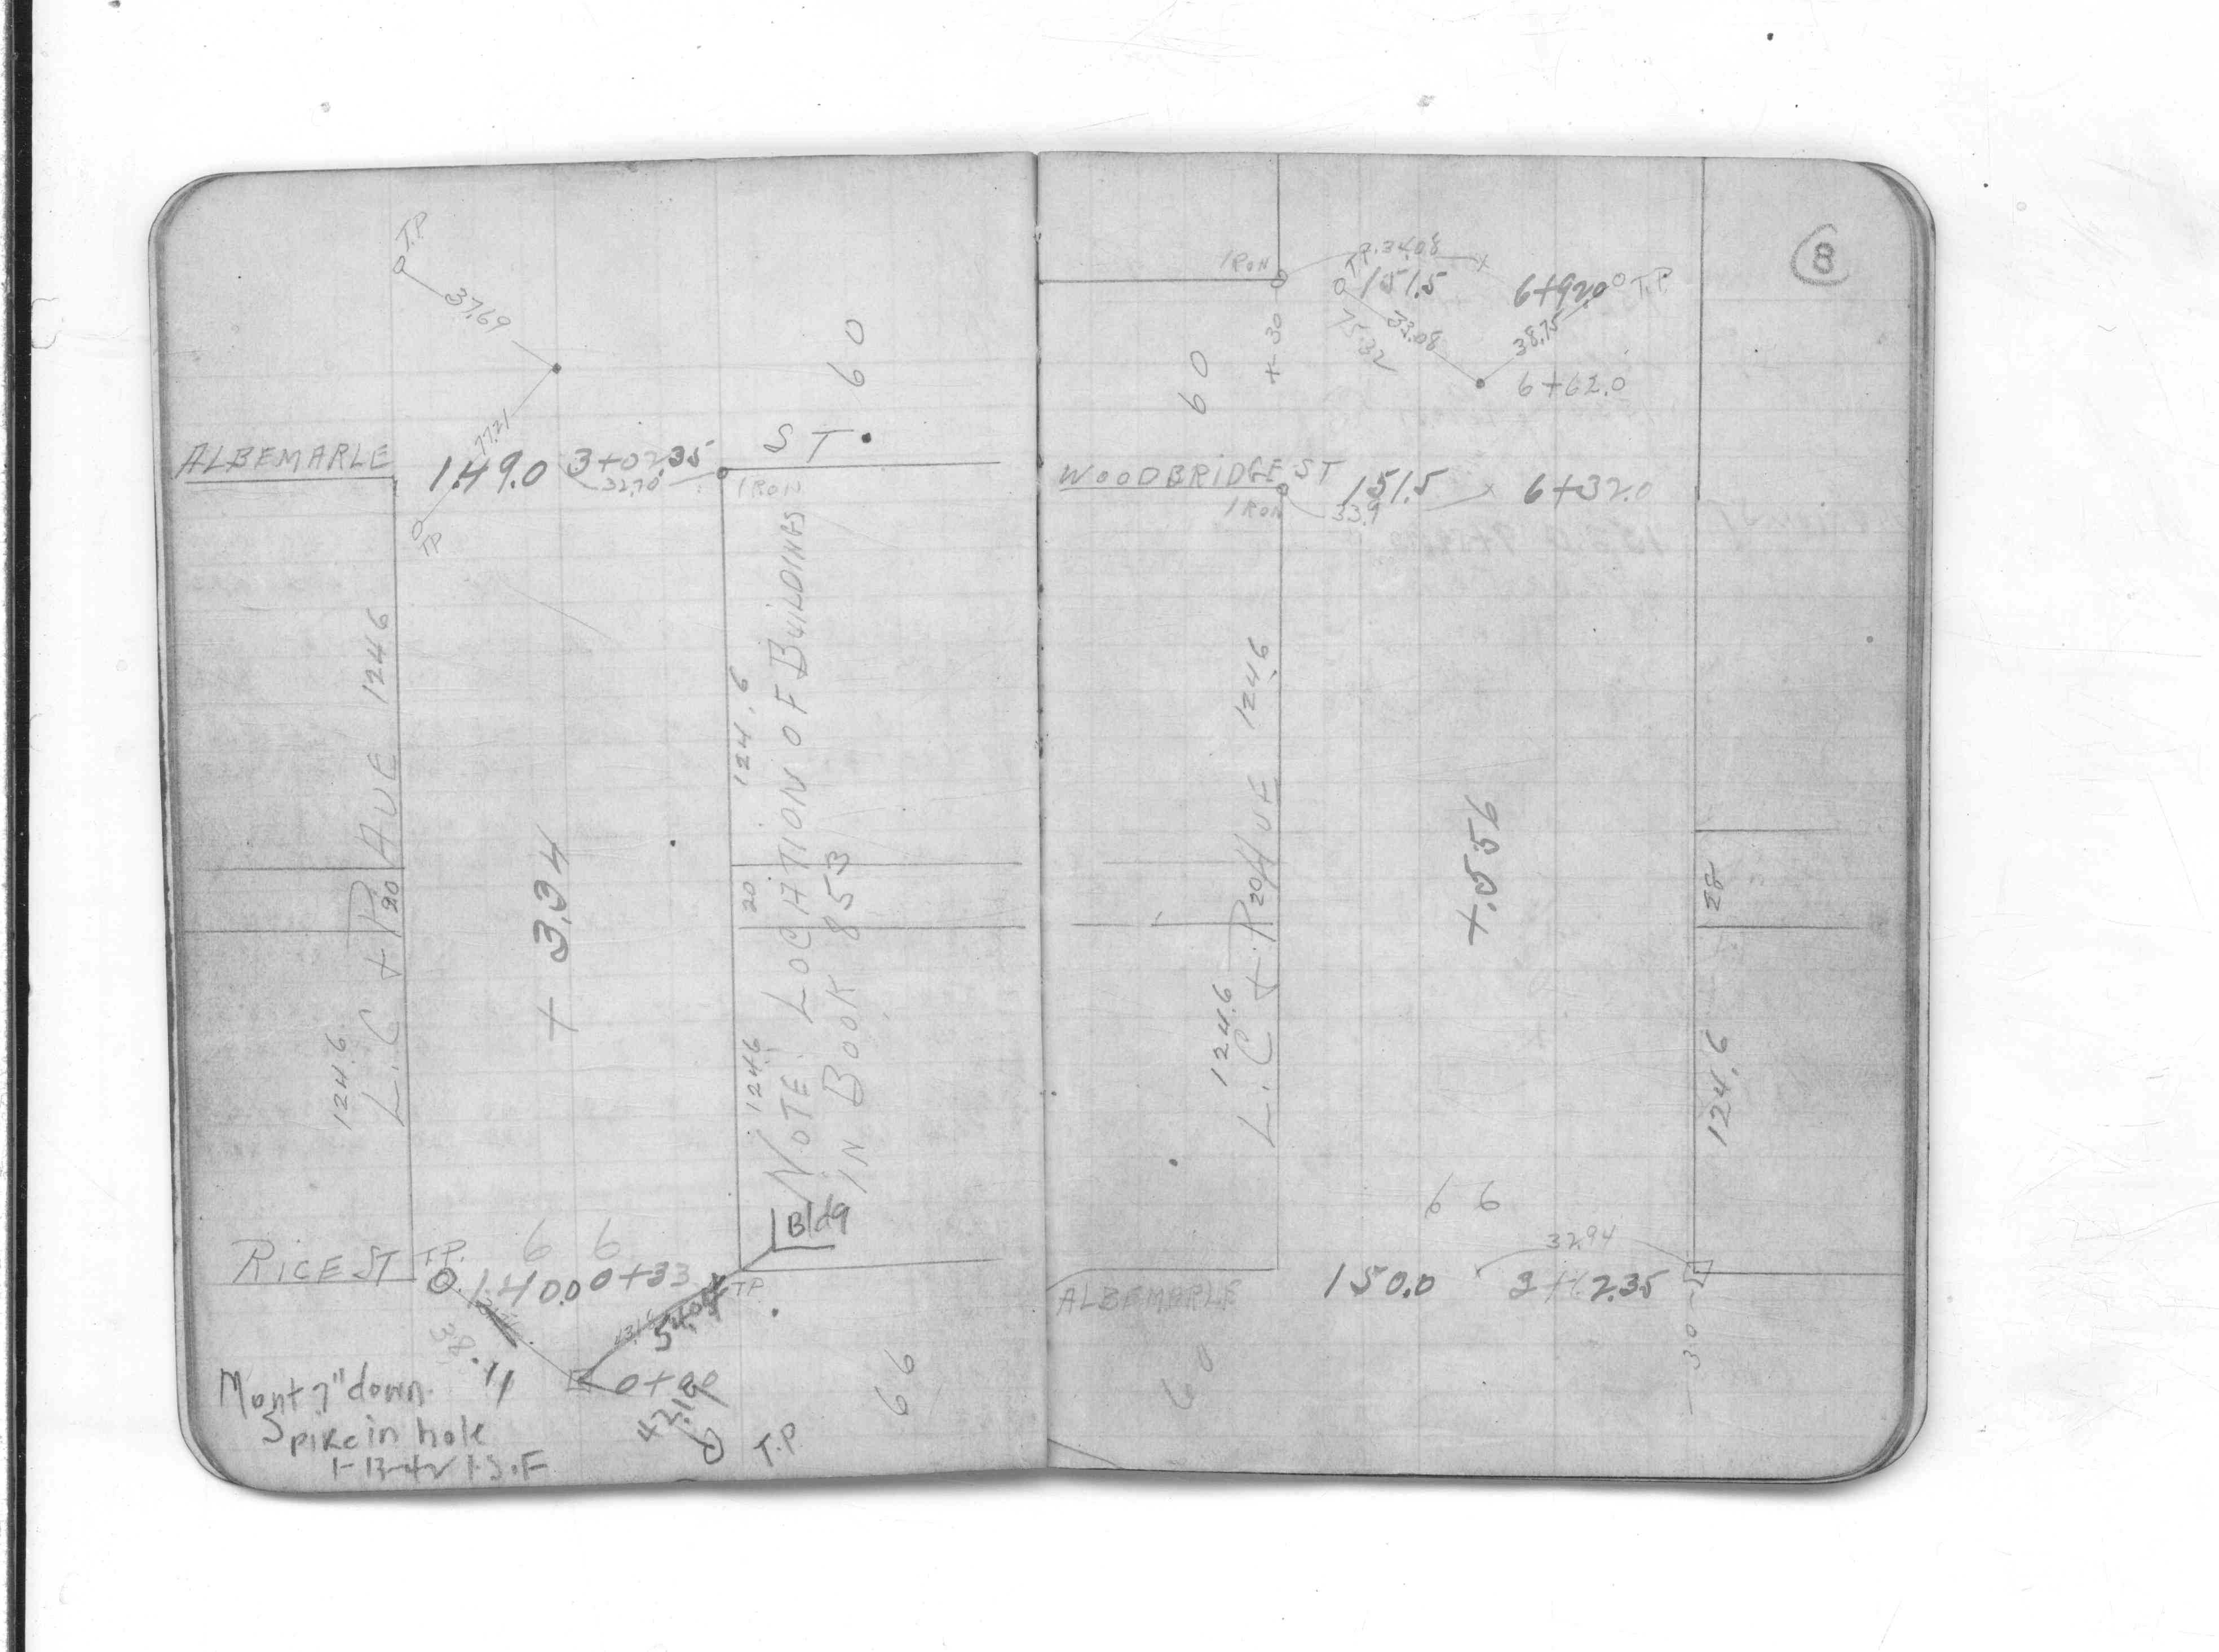 T.P.
37.69
60
77.21
ALBEMARLE
149.0
3+02.35
32.70
ST.
IRON
TP
1246
124.6
L.C + P AVE
20
20
+ 3.34
NOTE: LOCATION OF BUILDINGS
IN BOOK 853
124.6
124.6
Bldg
66
RICE ST
T.P.
140.0
0+33
T.P.
38.11
54.04
0+00
42.19
66
Mont 7" down
Spike in hole
T.P.
8
IRON
T.P.
34.08
151.5
6+92.0
T.P.
30
75.32
33.08
38.75
6+62.0
60
WOODBRIDGE ST
151.5
6+32.0
IRON
33.9
124.6
L.C + P AVE
20
+.556
28
124.6
124.6
66
32.94
ALBEMARLE
150.0
30
60